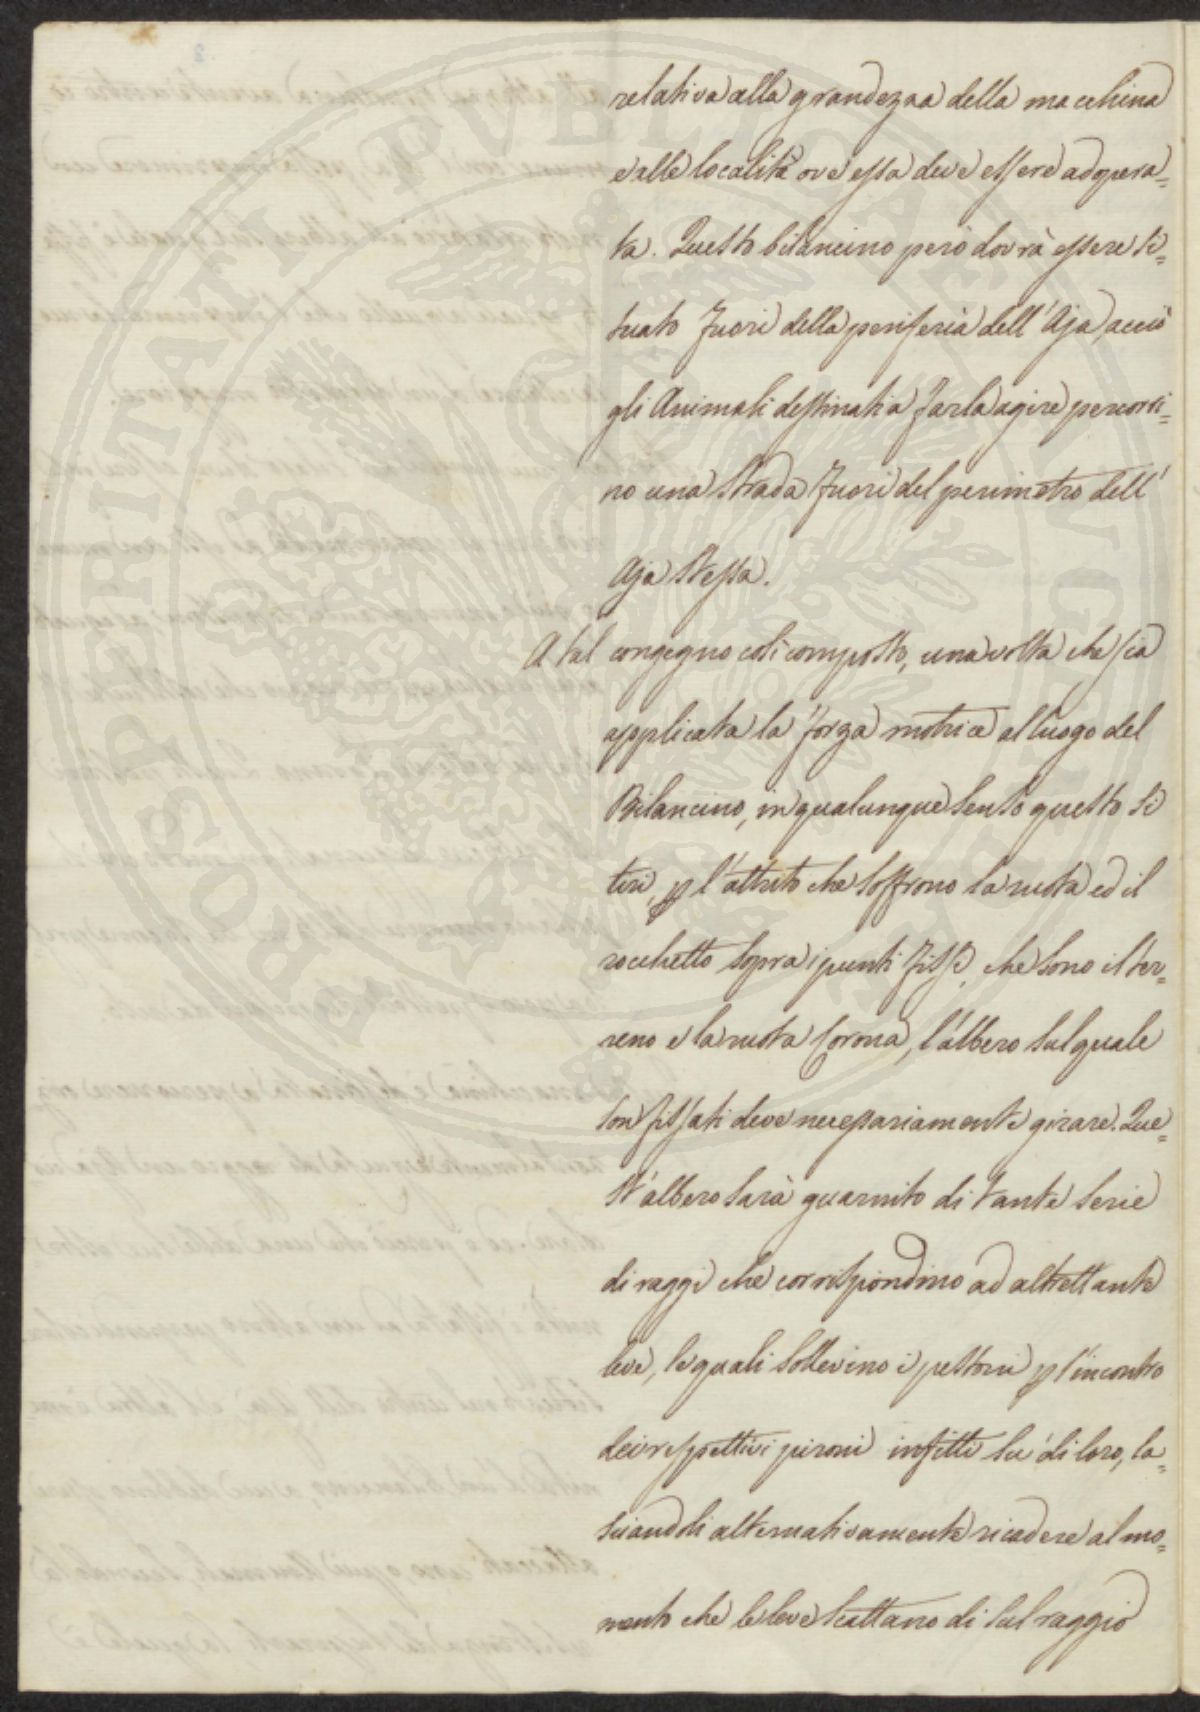 relativa alla grandezza della macchina
e alle località ove essa deve essere adopera=
ta. Questo bilancino però dovrà essere si=
tuato fuori della periferia dell'Aja, acciò
gli Animali destinati a farla agire percorri=
no una strada fuori del perimetro dell'
Aja stessa.
A tal congegno così composto, una volta che sia
applicata la forza motrice al luogo del
Bilancino, in qualunque senso questo si
tiri, p l'attrito che soffrono la ruota ed il
rocchetto sopra i punti fissi, che sono il ter=
reno e la ruota Corona, l'albero sul quale
son fissati deve necessariamente girare. Que=
st'albero sarà guarnito di tante serie
di raggi che corrispondino ad altrettante
leve, le quali sollevino i pestoni p l'incontro
dei respettivi pironi infitti su di loro, la=
sciandoli alternativamente ricadere al mo=
mento che le leve scattano di sul raggio
PROSPERITATI PVBLICAE AVGENDAE